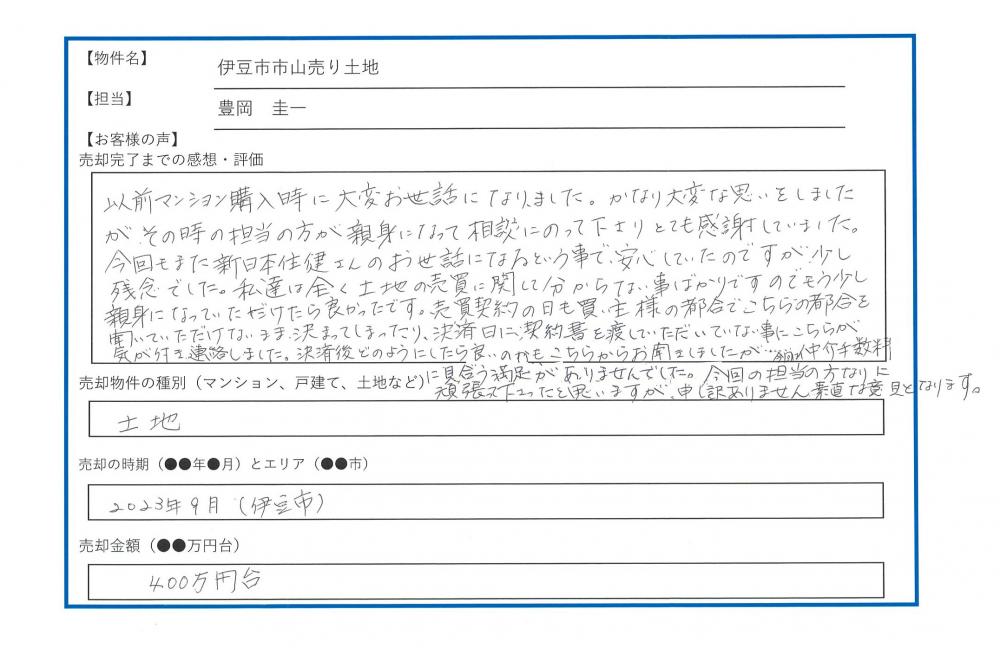 【物件名】
伊豆市市山売り土地
【担当】
豊岡　圭一
【お客様の声】
売却完了までの感想・評価
以前マンション購入時に大変お世話になりました。かなり大変な思いをしました
が、その時の担当の方が親身になって相談にのって下さりとても感謝していました。
今回もまた新日本住建さんのお世話になるという事で、安心していたのですが、少し
残念でした。私達は全く土地の売買に関して分からない事ばかりですのでもう少し
親身になっていただけたら良かったです。売買契約の日も買い主様の都合でこちらの都合を
聞いていただけないまま決まってしまったり、決済日に契約書を渡していただいていない事にこちらが
気が付き連絡しました。決済後どのようにしたら良いのかもこちらからお聞きしましたが…仲介手数料
に見合う満足がありませんでした。今回の担当の方なりに
頑張って下さったと思いますが、申し訳ありません素直な意見となります。
売却物件の種別（マンション、戸建て、土地など）
土地
売却の時期（●●年●月）とエリア（●●市）
2023年9月（伊豆市）
売却金額（●●万円台）
400万円台